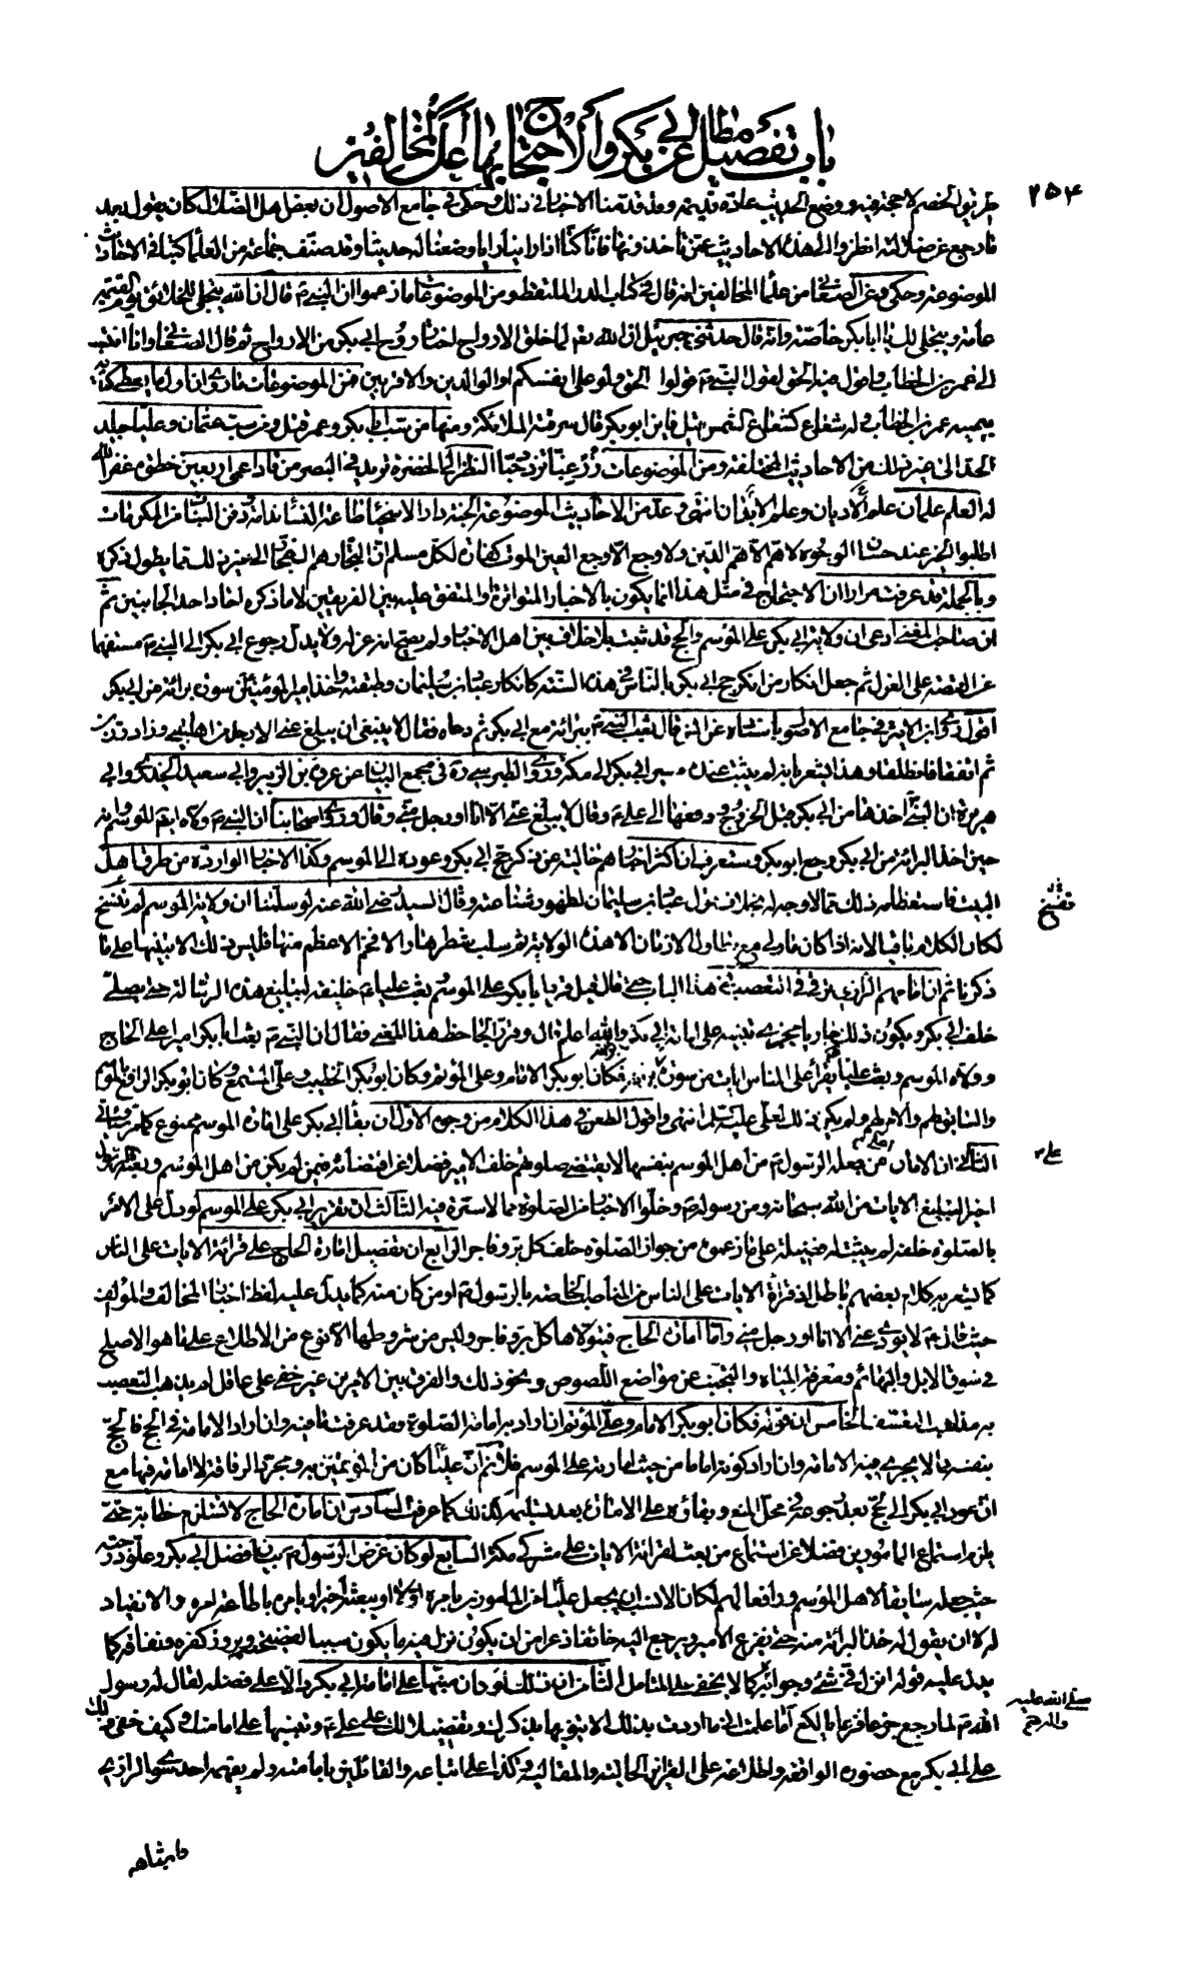 باب تفصيل مطاعن أبي بكر والاحتجاج بها على المخالفين
٢٥٤
طريق الخصم لا حجة فيه ووضع الحديث عادة قديمة وقد قدمنا الاخبار في ذلك وحكى في جامع الاصول ان بعض اهل الضلال كان يقول بعد
ما رجع عن ضلالته انظروا الى هذه الاحاديث عمن تأخذونها فانا كنا اذا راينا رايا وضعنا له حديثا وقد صنف جماعة من العلماء كتبا في الاحاديث
الموضوعة وحكى عن الصغاني من علماء المخالفين انه قال في كتاب الدر الملتقط ومن الموضوعات ما زعموا ان النبي ص قال ان الله يتجلى للخلائق يوم القيمة
عامة ويتجلى لك يا ابا بكر خاصة وانه قال حدثني جبرئيل ان الله تعم لما خلق الارواح اختار روح ابي بكر من الارواح ثم قال الصغاني وانا انتسب
الى عمر بن الخطاب واقول فيه الحق لقول النبي ص قولوا الحق ولو على انفسكم او الوالدين والاقربين فمن الموضوعات ما روى ان اول من يعطى كتابه
بيمينه عمر بن الخطاب وله شعاع كشعاع الشمس قيل فاين ابو بكر قال سرقته الملائكة ومنها من سب ابا بكر وعمر قتل ومن سب عثمان وعليا جلد
الحد الى غير ذلك من الاحاديث المختلقة ومن الموضوعات زر غبا تزدد حبا النظر الى الخضرة تزيد في البصر من قاد اعمى اربعين خطوة غفر الله
له العلم علمان علم الاديان وعلم الابدان انتهى وعد من الاحاديث الموضوعة الجنة دار الاسخياء طاعة النساء ندامة دفن البنات من المكرمات
اطلبوا الخير عند حسان الوجوه لا هم الا هم الدين ولا وجع الا وجع العين الموت كفارة لكل مسلم ان التجار هم الفجار الى غير ذلك مما يطول ذكره
وبالجملة قد عرفت مرارا ان الاحتجاج في مثل هذا انما يكون بالاخبار المتواترة او المتفق عليه بين الفريقين لا ما ذكره احاد احد الجانبين ثم
ان صاحب المغني ادعى ان ولاية ابي بكر على الموسم والحج قد ثبت بلا خلاف بين اهل الاخبار ولم يصح انه عزله ولا يدل رجوع ابي بكر الى النبي ص مستفهما
عن القصة على العزل ثم جعل انكار من انكر حج ابي بكر بالناس في هذه السنة كانكار عباد بن سليمان وطبقته واخذ امير المؤمنين سورة برائة من ابي بكر
اقول روى ابن الاثير في جامع الاصول باسناده عن انس قال بعث النبي ص ببرائة مع ابي بكر ثم دعاه فقال لا ينبغي ان يبلغ عني الا رجل من اهل بيتي وزاد رزين
ثم اتفقا فانطلقا وهذا يشعر بانه لم يثبت عنده مسير ابي بكر الى مكة وروى الطبرسي ره في مجمع البيان عن عروة بن الزبير وابي سعيد الخدري وابي
هريرة ان النبي ص اخذها من ابي بكر قبل الخروج ودفعها الى علي ع وقال لا يبلغ عني الا انا او رجل مني وقال وروى اصحابنا ان النبي ص ولاه ايضا الموسم وانه
حين اخذ البرائة من ابي بكر رجع ابو بكر وستعرف ان اكثر اخبارهم خالية عن ذكر حج ابي بكر وعوده الى الموسم وكذا الاخبار الواردة من طرق اهل
البيت فاستعظامه ذلك مما لا وجه له بخلاف قول عباد بن سليمان لظهور شناعته وقال السيد رضي الله عنه لو سلمنا ان ولاية الموسم لم تنسخ
فنسخ
لكان الكلام باقيا لانه اذا كان ما ولي مع تطاول الازمان الا هذه الولاية ثم سلب شطرها والافخم الاعظم منها فليس ذلك الا تنبيها على ما
ذكرنا ثم ان امامهم الرازي ترقى في التعصب في هذا الباب حتى قال قيل قرر ابا بكر على الموسم وبعث عليا ع خليفة لتبليغ هذه الرسالة حتى يصلي
خلف ابي بكر ويكون ذلك جاريا مجرى تنبيه على امامة ابي بكر والله اعلم قال وقرر الجاحظ هذا المعنى فقال ان النبي ص بعث ابا بكر اميرا على الحاج
وولاه الموسم وبعث عليا يقرأ على الناس ايات من سورة براءة فكان ابو بكر الامام وعلي المؤتم وكان ابو بكر الخطيب وعلي المستمع وكان ابو بكر الرافع بالموسم
والسابق لهم والامر لهم ولم يكن ذلك لعلي عليه السلام انتهى واقول الطعن في هذا الكلام من وجوه الاول ان بقاء ابي بكر على امارة الموسم ممنوع كما مر وسياتي
الثاني ان الامارة على من جعله الرسول ص من اهل الموسم بنفسها لا يقتضي صلوتهم خلف الامير فضلا عن اقتضائه فيمن لم يكن من اهل الموسم وبعثه الرسول
علي
اخيرا لتبليغ الايات من الله سبحانه ومن رسوله ص وخلو الاخبار من الصلوة مما لا سترة فيه الثالث ان تقرير ابي بكر على الموسم لو دل على الامر
بالصلوة خلفه لم يثبت له فضيلة على ما زعموه من جواز الصلوة خلف كل بر وفاجر الرابع ان تفضيل امارة الحاج على قرائة الايات على الناس
كما يشعر به كلام بعضهم باطل اذ قراءة الايات على الناس من المناصب الخاصة بالرسول ص او من كان منه كما يدل عليه لفظ اخبار المخالف والمؤالف
حيث قال ص لا يؤدي عني الا انا او رجل مني واما امارة الحاج فيتولاها كل بر وفاجر وليس من شروطها الا نوع من الاطلاع على ما هو الاصلح
في سوق الابل والبهائم ومعرفة المياه والتجنب عن مواضع اللصوص ونحو ذلك والفرق بين الامرين غير خفي على عاقل لم يذهب التعصب
به مذاهب التعسف الخامس ان قوله فكان ابو بكر الامام وعلي المؤتم ان اراد به امامة الصلوة فقد عرفت ما فيه وان اراد الامامة في الحج فالحج
بنفسه لا يجري فيه الامامة وان اراد كونه اماما من حيث امارته على الموسم فلا نم ان عليا كان من المؤتمين به ومجرد الرفاقة لا امامة فيها مع
ان عود ابي بكر الى الحج بعد رجوعه في محل المنع وبقاؤه على الامارة بعد تسليمه كذلك كما عرفت السادس ان امارة الحاج لا تستلزم خطابة حتى
يلزم استماع المأمورين فضلا عن استماع من بعث لقرائة الايات على مشركي مكة السابع لو كان غرض الرسول ص بيان فضل ابي بكر وعلو درجته
حيث جعله سابقا لاهل الموسم ورافعا لهم لكان الانسب ان يجعل عليا من المأمورين بامره اولا او يبعثه اخيرا ويامره باطاعة امره والانقياد
له لا ان يقول له خذ البرائة منه حتى يفزع الامير ويرجع اليه خائفا ذعرا من ان يكون نزل فيه ما يكون سببا لفضيحته وبروز كفره ونفاقه كما
يدل عليه قوله انزل في شيء وجوابه كما لا يخفى على المتامل الثامن ان ذلك لو كان منبها على امامة ابي بكر دالا على فضله لقال له رسول
صلى الله عليه واله
الله ص لما رجع جزعا فزعا يا لكع اما علمت اني ما اردت بذلك الا تنويها بذكرك وتفضيلا لك على علي ع وتنبيها على امامتك وكيف خفي ذلك
على ابي بكر مع حضوره الواقعة واطلاعه على القرائن الحالية والمقالية وكذا على اتباعه والقائلين بامامته ولم يفهمه احد سوى الرازي